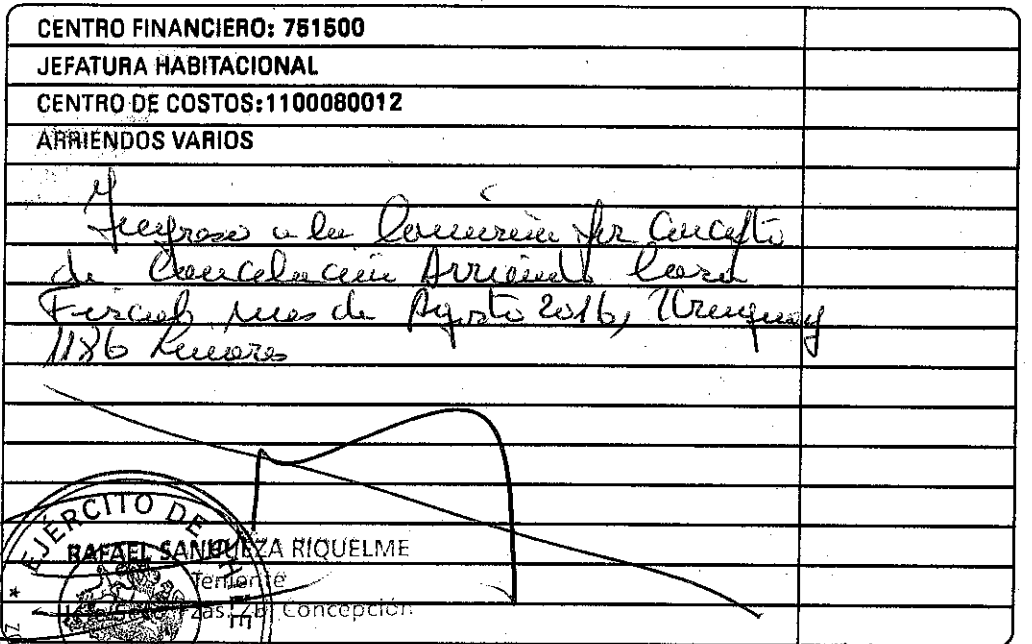 CENTRO FINANCIERO: 751500
JEFATURA HABITACIONAL
CENTRO DE COSTOS:1100080012
ARRIENDOS VARIOS
Ingreso a la Comisión por Concepto
de Cancelación Arriendo Casa
Fiscal mes de Agosto 2016, Uruguay
1186 Linares
EJÉRCITO DE CHILE
RAFAEL SANHUEZA RIQUELME
Teniente
Concepción